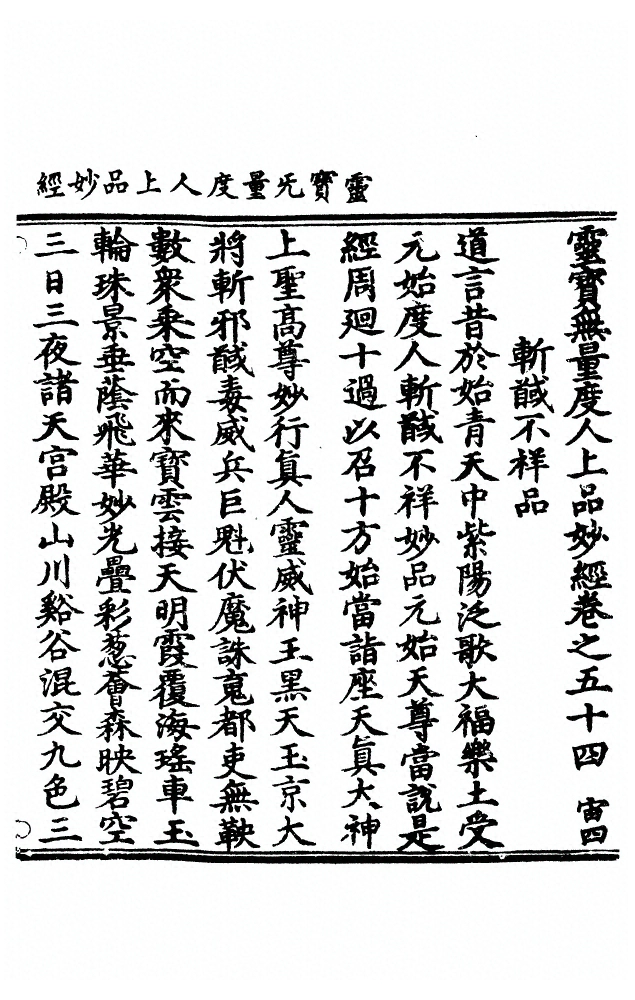 靈寳旡量度人上品妙經
靈寳無量度人上品妙經卷之五十四 宙四
斬馘不祥品
道言昔於始青天中紫陽泛歌大福樂土受
元始度人斬馘不祥妙品元始天尊當說是
經周廻十過以召十方始當詣座天眞大神
上聖髙尊妙行眞人靈威神王黑天玉京大
將斬邪馘毒威兵巨魁伏魔誅䰡都吏無鞅
數衆乗空而來寳雲接天明霞覆海瑤車玉
輪珠景垂蔭飛華妙光疊彩葱薈森映碧空
三日三夜諸天宫殿山川谿谷混交九色三